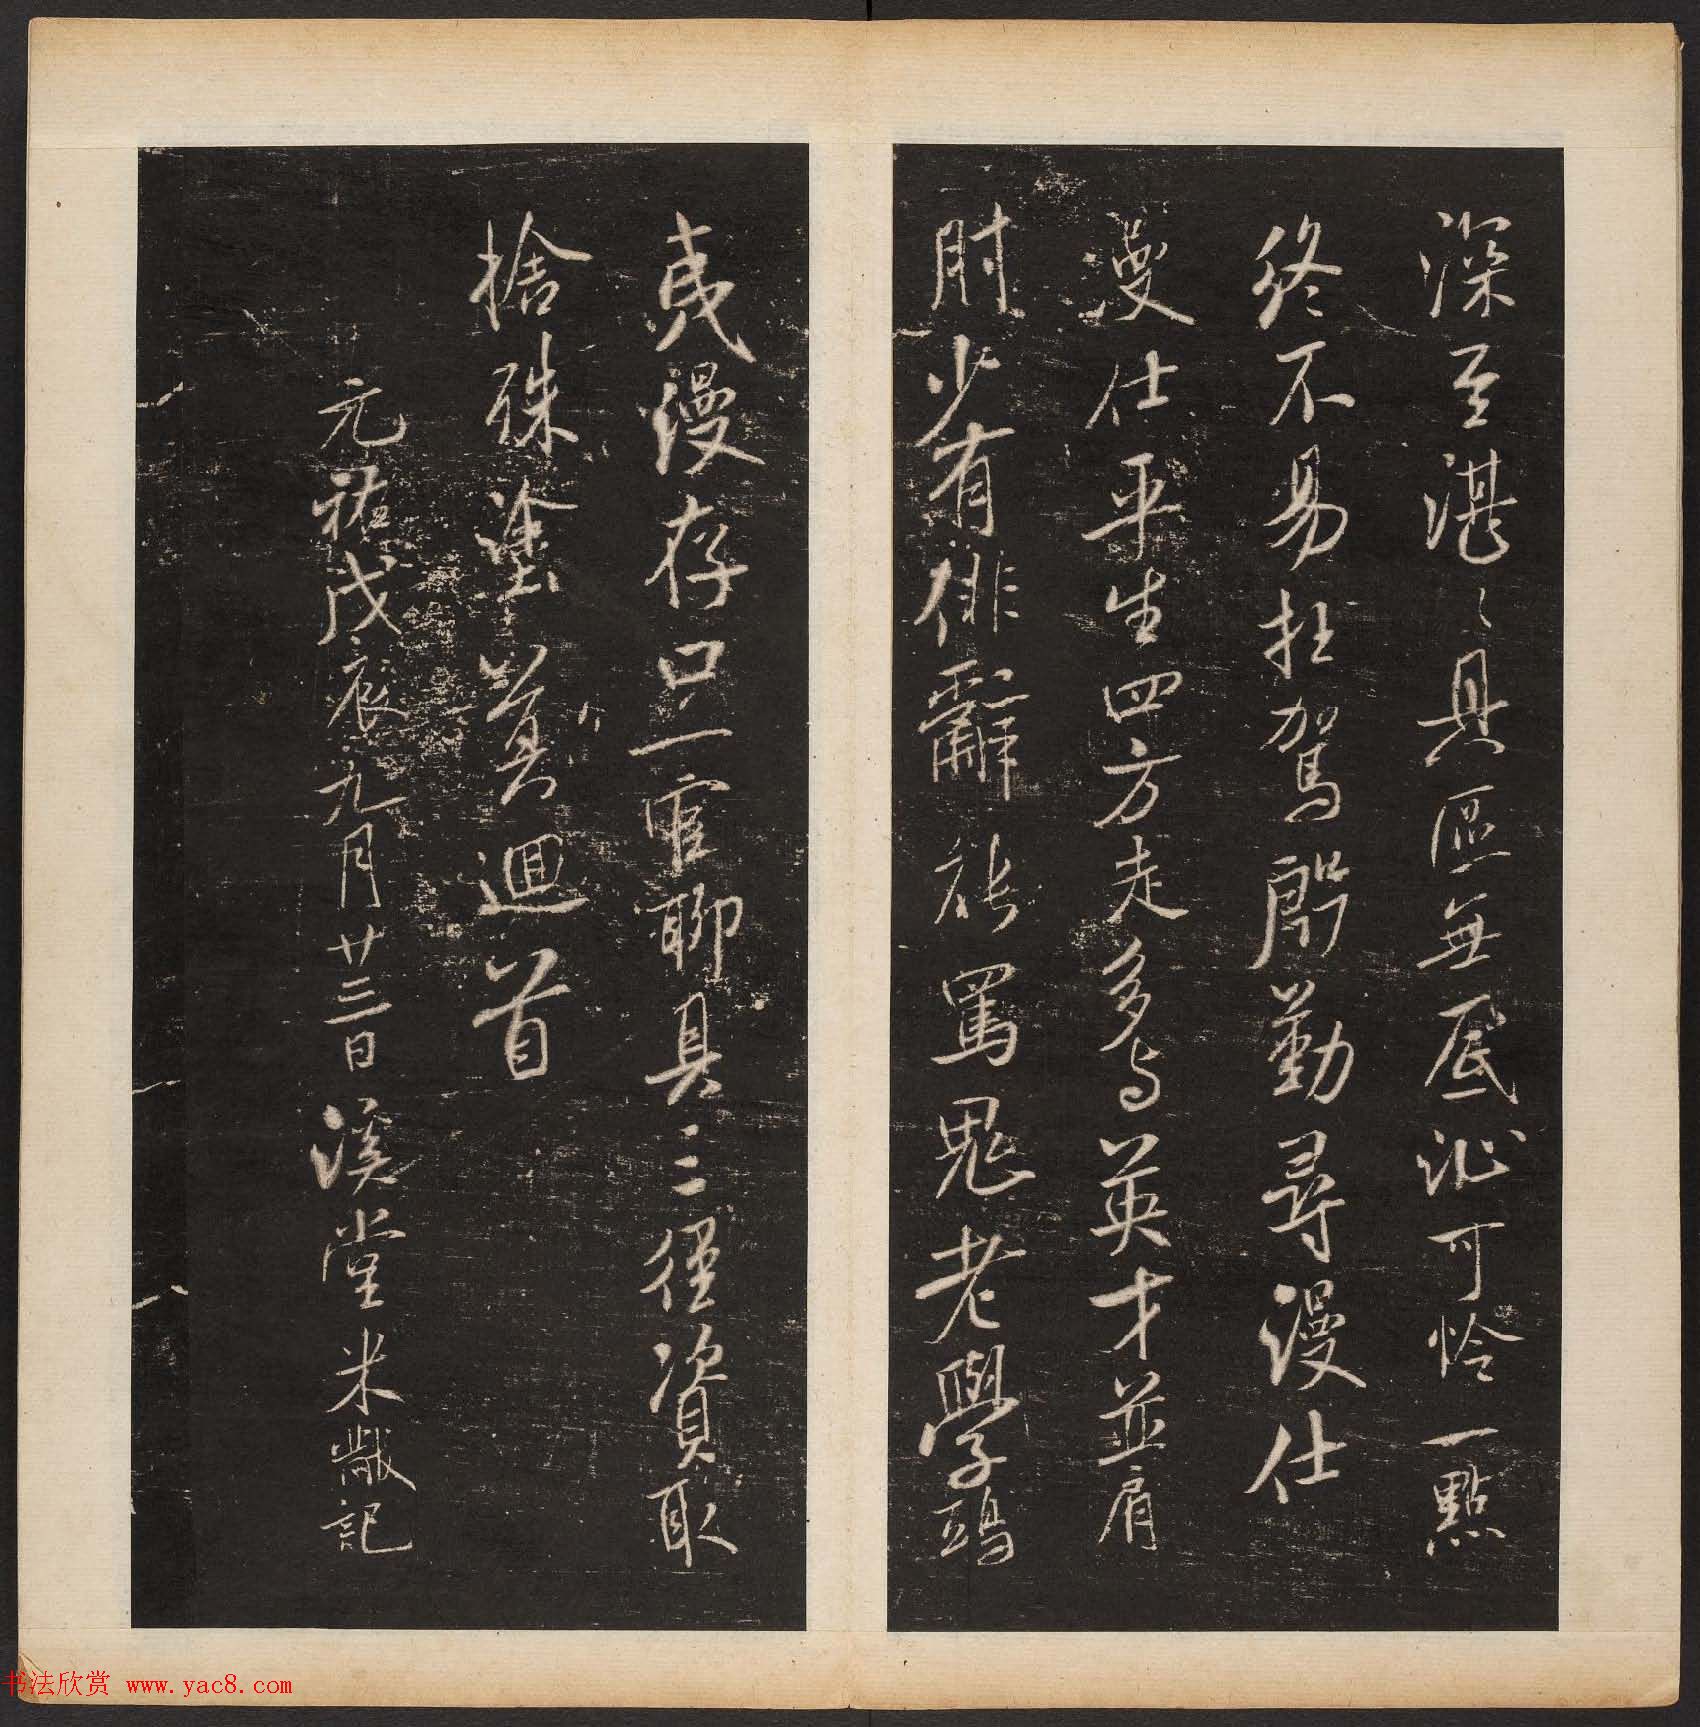 深至湛湛具區無底沚可憐一點
終不易枉駕殷勤尋漫仕
漫仕平生四方走多与英才並肩
肘少有俳辭能罵鬼老學鴟
夷漫存口一官聊具三徑資取
捨殊塗莫迴首
元祐戊辰九月廿三日溪堂米黻記
书法欣赏 www.yac8.com